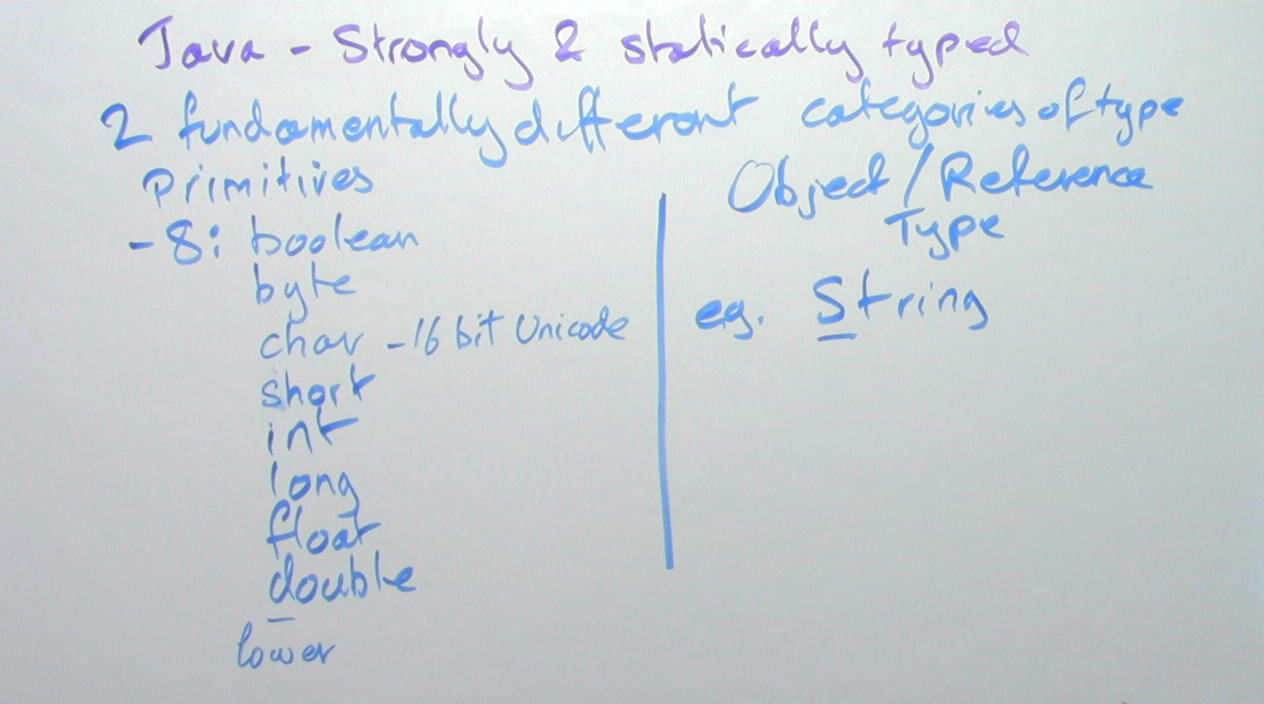 Java - Strongly & statically typed
2 fundamentally different categories of type
Primitives
- 8: boolean
byte
char - 16 bit Unicode
short
int
long
float
double
lower
Object / Reference
Type
eg. String